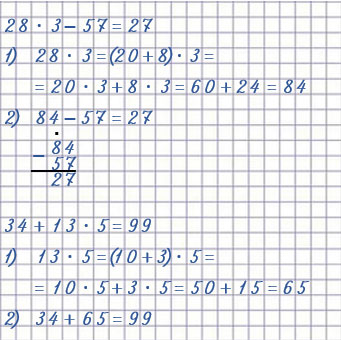 28 · 3 – 57 = 27
1) 28 · 3 = (20 + 8) · 3 =
= 20 · 3 + 8 · 3 = 60 + 24 = 84
2) 84 – 57 = 27
– 84
57
27
34 + 13 · 5 = 99
1) 13 · 5 = (10 + 3) · 5 =
= 10 · 5 + 3 · 5 = 50 + 15 = 65
2) 34 + 65 = 99